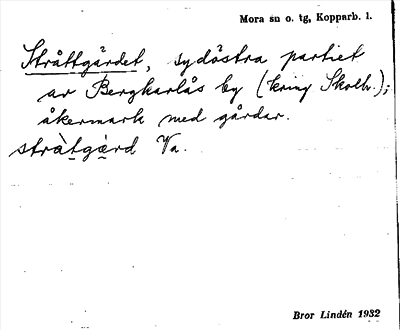 Mora sn o. tg, Kopparb. l.
Stråttgärdet, sydöstra partiet
av Bergkarlås by (kring Skolh.);
åkermark med gårdar.
stràtgæ̀rd Va.
Bror Lindén 1932